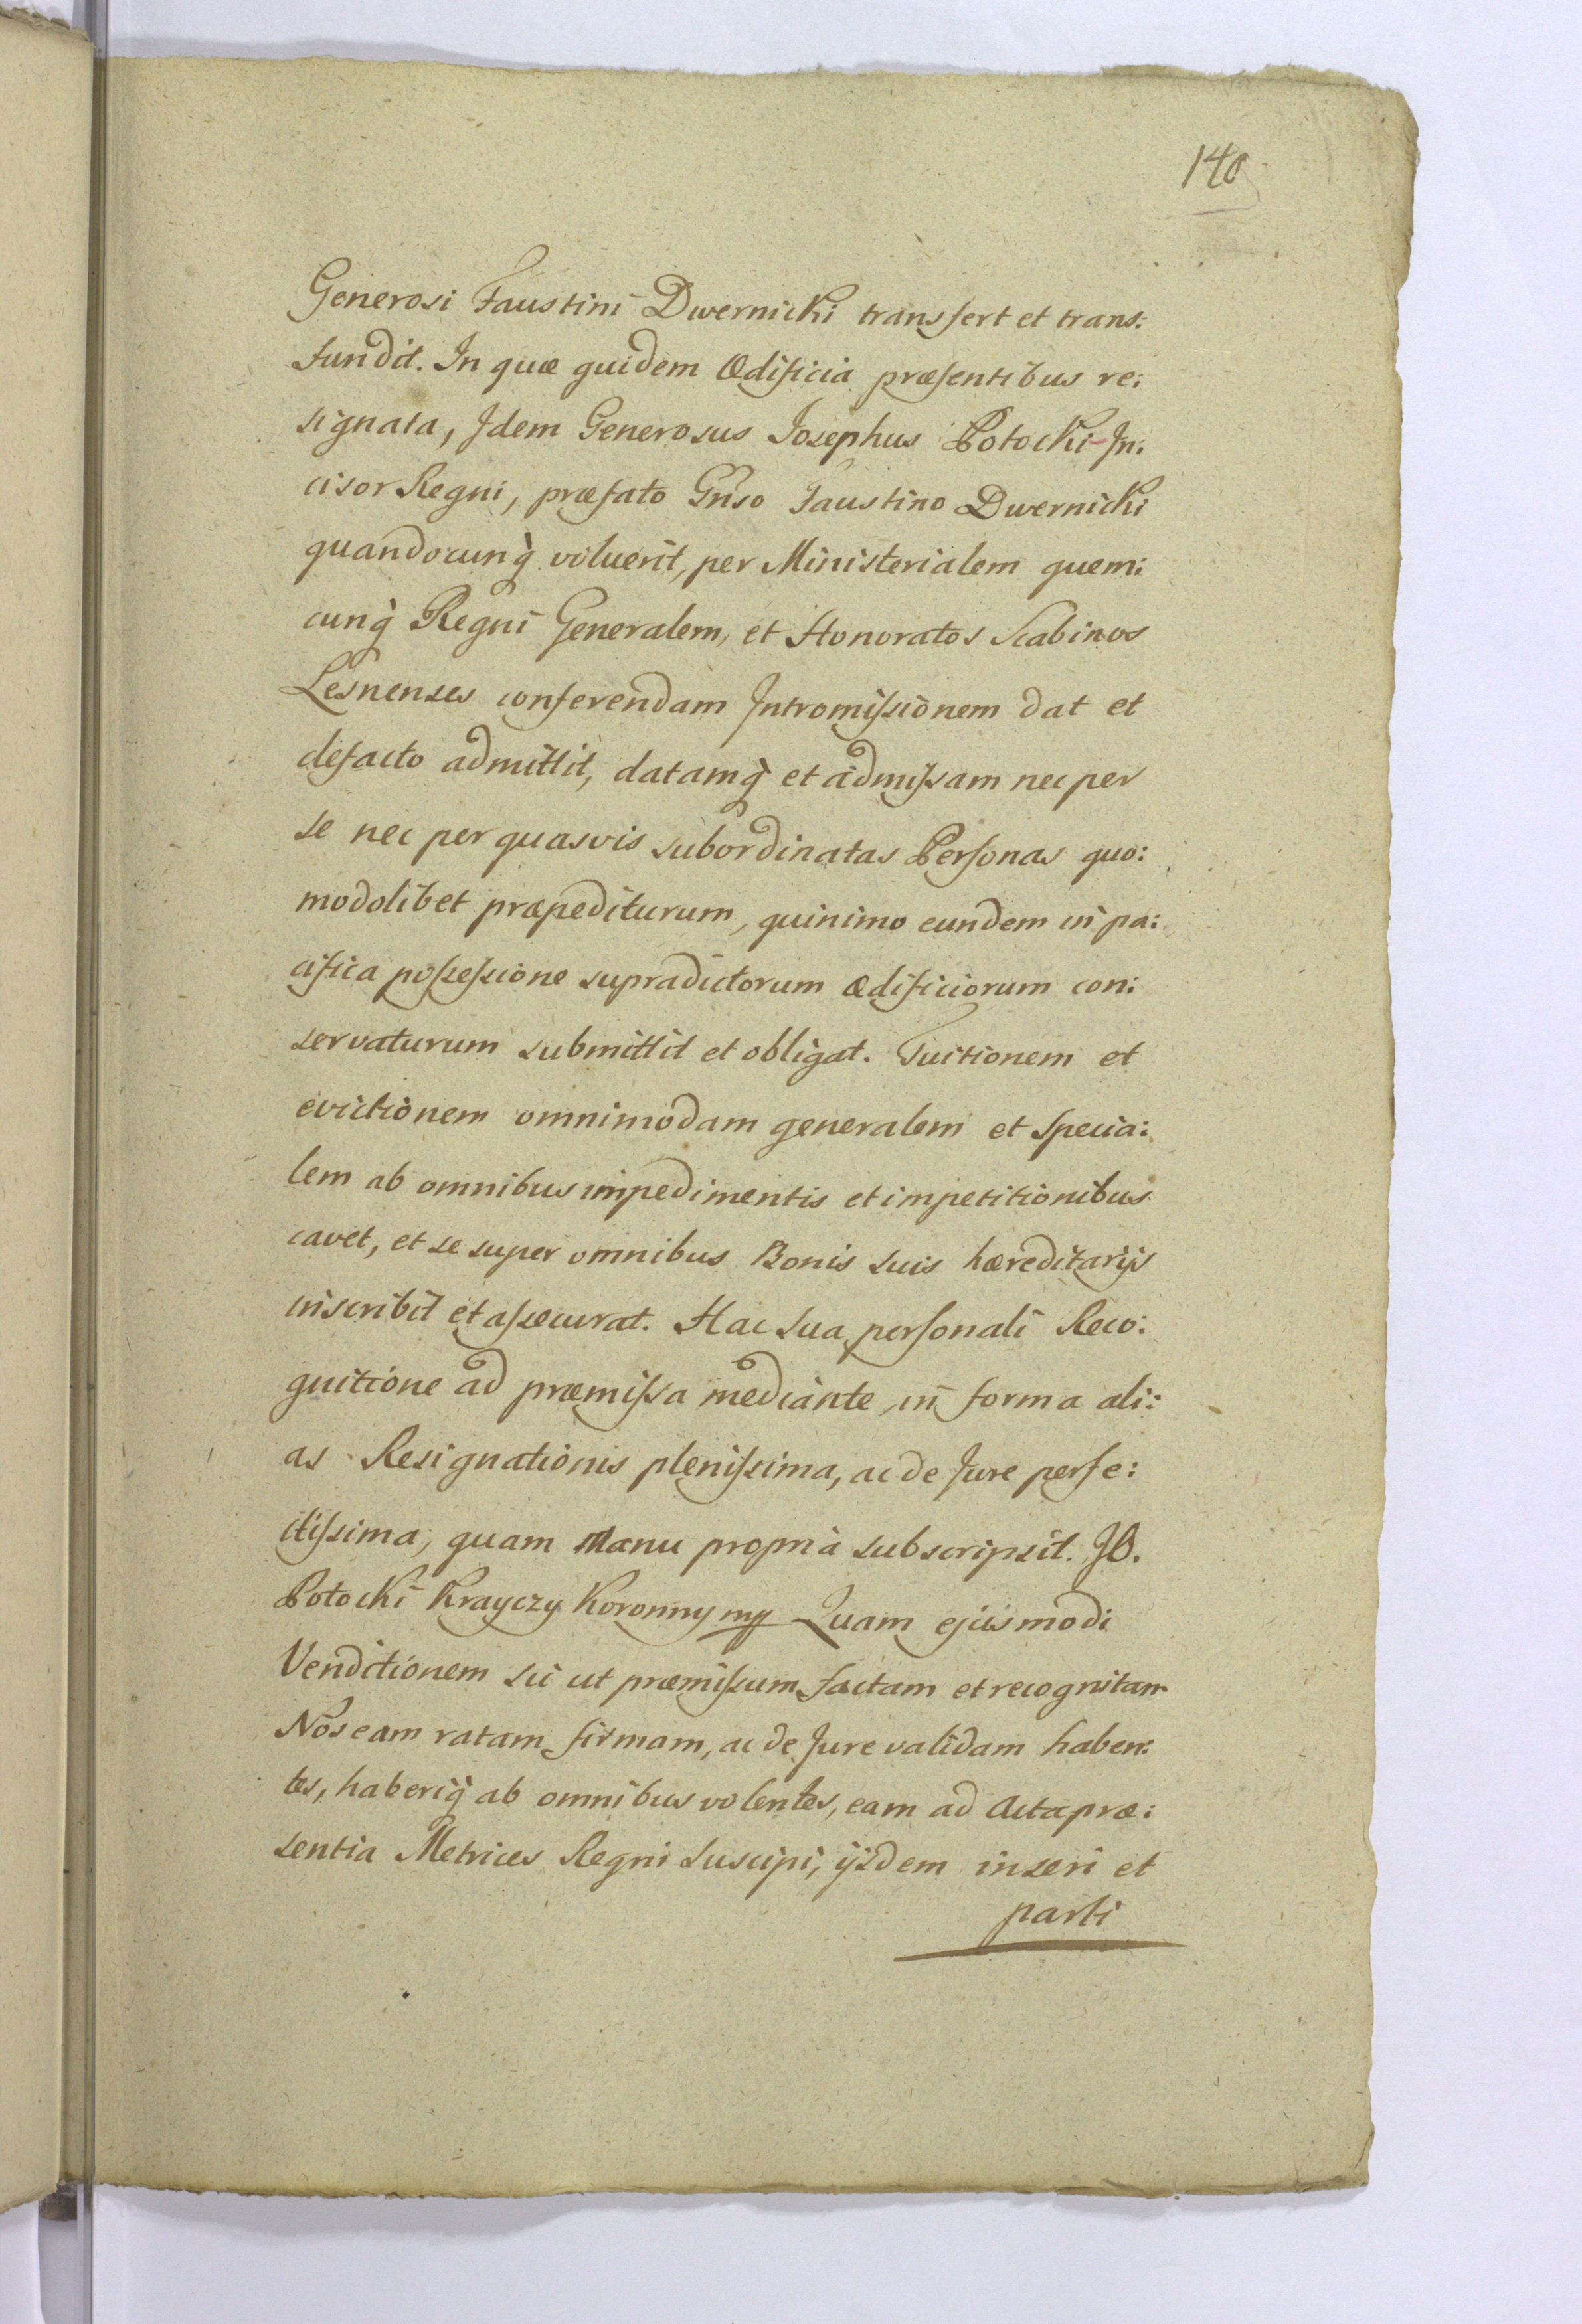 140
Generosi Faustini Dwernicki transfert et trans:
fundit. In quæ quidem Ædificia præsentibus re:
signata, Idem Generosus Josephus Potocki In:
cisor Regni, præfato Gnso Faustino Dwernicki
quandocunq̀ voluerit, per Ministerialem quem:
cunq̀ Regni Generalem, et Honoratos Scabinos
Lesnenses conferendam Intromissionem dat et
defacto admittit, datamq̀ et admissam nec per
se nec per quasvis subordinatas Personas quo:
modolibet præpediturum, quinimo eundem in pa:
cifica possessione supradictorum ædificiorum con:
servaturum submittit et obligat. Tuitionem et
evictionem omnimodam generalem et specia:
lem ab omnibus impedimentis et impetitionibus
cavet, et se super omnibus Bonis suis hæreditarijs
inscribit et assecurat. Hac sua personali Reco:
gnitione ad præmissa mediante, in forma ali:
as Resignationis plenissima, ac de Jure perfe:
ctissima, quam Manu propria subscripsit. J.
Potocki Krayczy Koronny mp Quam ejusmodi
Venditionem sic ut præmissum factam et recognitam
Nos eam ratam firmam, ac de Jure validam haben:
tes, haberiq̀ ab omnibus volentes, eam ad Acta præ:
sentia Metrices Regni suscipi, ijsdem inseri et
parti